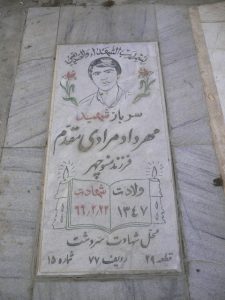 سرباز شهید
مهرداد مرادی مقدم
فرزند منوچهر
ولادت شهادت
۱۳۴۷ ۶۶,۲,۲۲
محل شهادت سردشت
قطعه ۲۹ ردیف ۷۷ شماره ۱۵